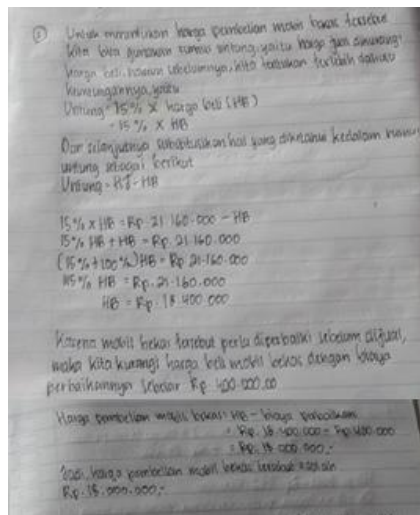 ② Untuk menentukan harga pembelian mobil bekas tersebut
kita bisa gunakan rumus untung, yaitu harga jual dikurangi
harga beli. Namun sebelumnya, kita tentukan terlebih dahulu
keuntungannya, yaitu
Untung = 15% x harga beli (HB)
= 15% x HB
Dan selanjutnya substitusikan hal yang diketahui kedalam rumus
untung sebagai berikut
Untung = HJ - HB
15% x HB = Rp. 21.160.000 - HB
15% HB + HB = Rp. 21.160.000
(15% + 100%) HB = Rp. 21.160.000
115% HB = Rp. 21.160.000
HB = Rp. 18.400.000
Karena mobil bekas tersebut perlu diperbaiki sebelum dijual,
maka kita kurangi harga beli mobil bekas dengan biaya
perbaikannya sebesar Rp. 400.000,00
Harga pembelian mobil bekas = HB - biaya perbaikan
= Rp. 18.400.000 - Rp. 400.000
= Rp. 18.000.000,-
Jadi, harga pembelian mobil bekas tersebut adalah
Rp. 18.000.000,-